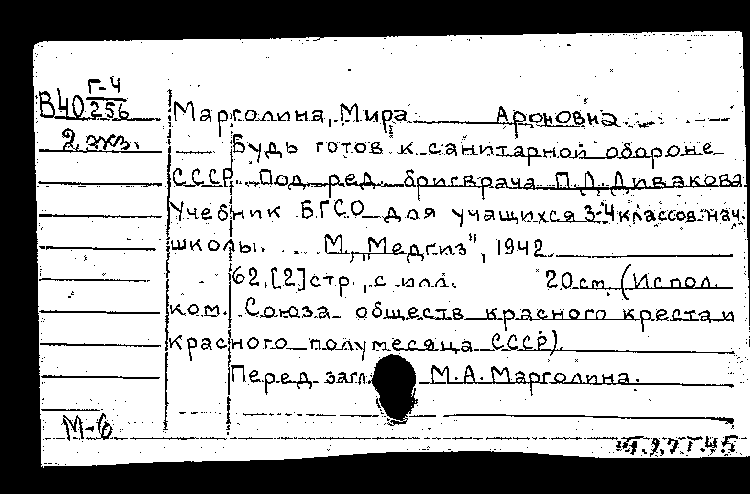 Г-4
В40 256
2 экз.
Марголина, Мира Ароновна
Будь готов к санитарной обороне
СССР. Под ред. бригврача П.П. Дивакова
Учебник БГСО для учащихся 3-4 классов нач.
школы. М., „Медгиз", 1942
62, [2] стр., с илл. 20 см. (Испол.
ком. Союза обществ красного креста и
красного полумесяца СССР).
Перед загл. М.А. Марголина.
М-6